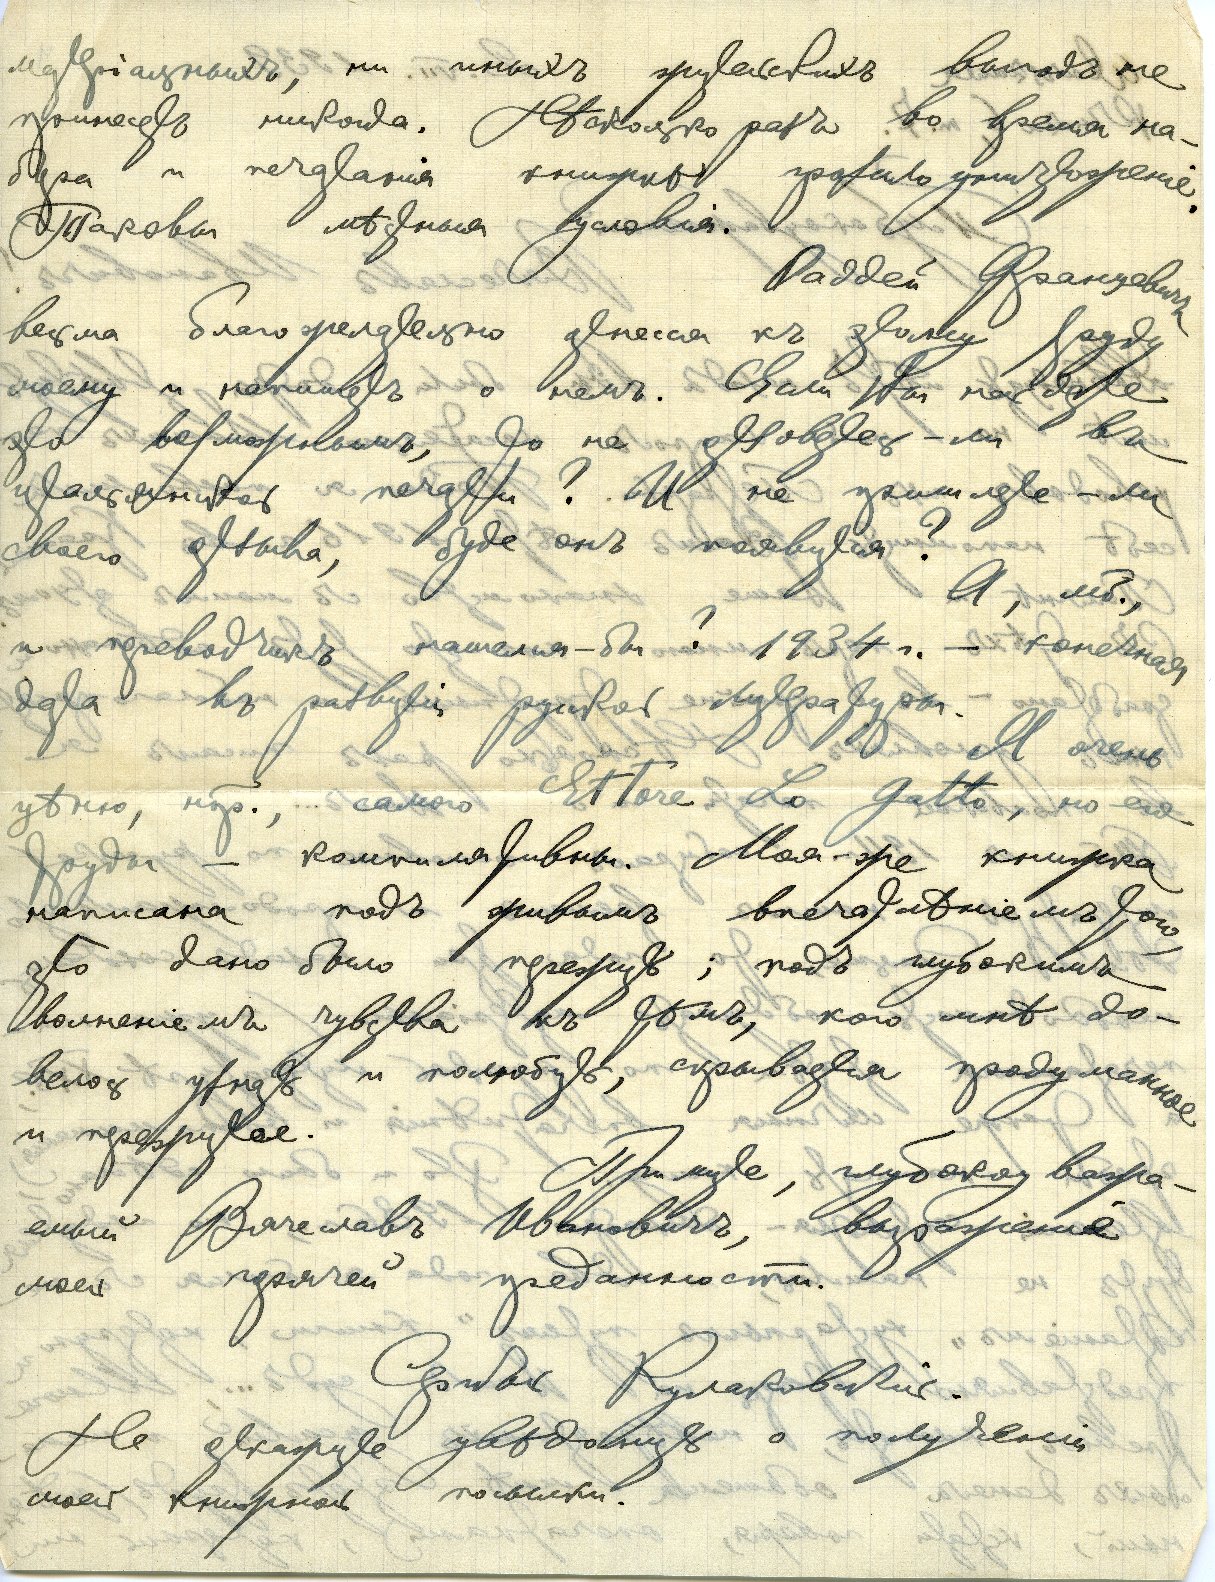 матеріальныхъ, ни иныхъ житейскихъ выгодъ не
принесетъ никогда. Нѣсколько разъ во время на-
бора и печатанія книжкѣ грозило уничтоженіе.
Таковы мѣстныя условія.
Фаддей Францевичъ
весьма благожелательно отнесся къ этому труду
моему и напишетъ о немъ. Если Вы найдете
это возможнымъ, то не отзоветесь-ли въ
итальянской печати? И не пришлете-ли
своего отзыва, буде онъ появится?
А, мб.,
и переводчикъ нашелся-бы? 1934 г. – конечная
дата въ развитіи русской литературы. –
Я очень
цѣню, нпр., ... самого Ettore Lo Gatto, но его
труды – компилятивны. Моя-же книжка
написана подъ живымъ впечатлѣніемъ того,
что дано было пережить; подъ глубокимъ
волненіемъ чувства къ тѣмъ, кого мнѣ до-
велось узнать и полюбить, скрывается продуманное
и пережитое.
Примите, глубокоуважа-
емый Вячеславъ Ивановичъ, выраженіе
моей горячей преданности.
Сергѣй Кулаковскій.
Не откажите увѣдомить о полученіи
моей книжной посылки.